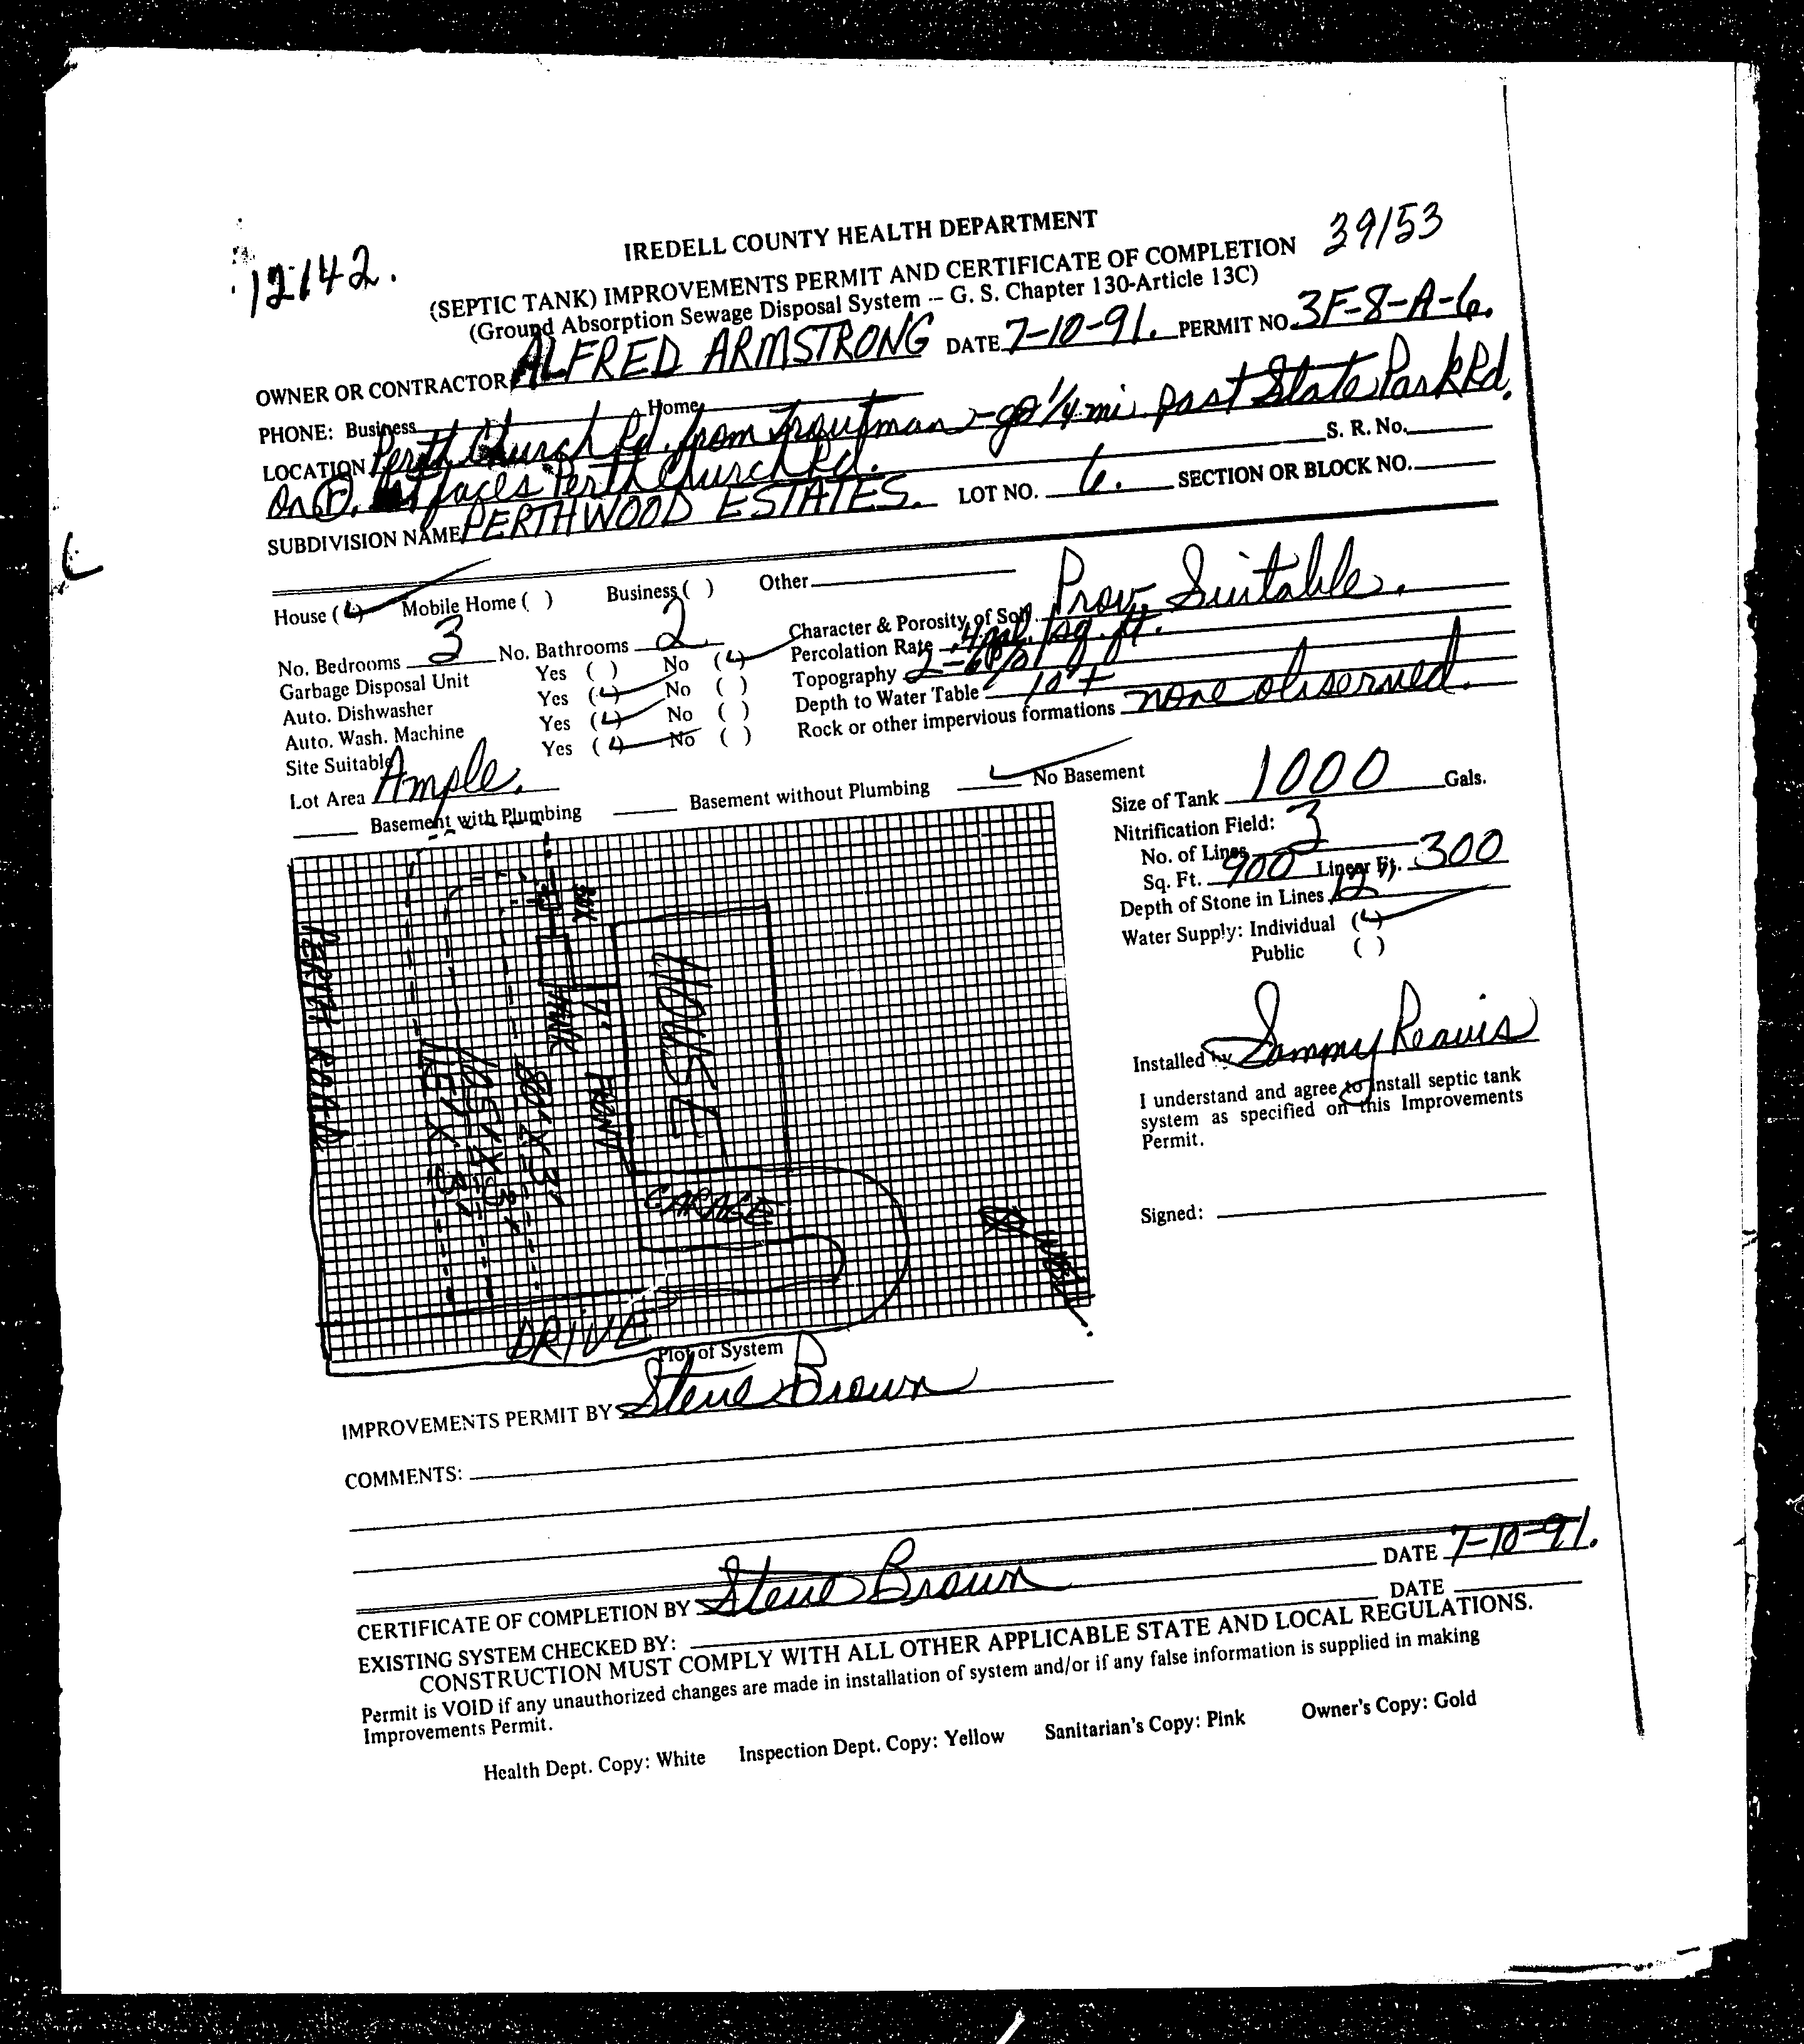 12142.
IREDELL COUNTY HEALTH DEPARTMENT
39153
(SEPTIC TANK) IMPROVEMENTS PERMIT AND CERTIFICATE OF COMPLETION
(Ground Absorption Sewage Disposal System -- G. S. Chapter 130-Article 13C)
OWNER OR CONTRACTOR ALFRED ARMSTRONG DATE 7-10-91. PERMIT NO. 3F-8-A-6.
PHONE: Business Home
LOCATION Perth Church Rd. from Troutman - go 1/4 mi past State Park Rd.
S. R. No.
On faces Perth Church Rd.
SUBDIVISION NAME PERTHWOOD ESTATES. LOT NO. 6. SECTION OR BLOCK NO.
House ( ) Mobile Home ( ) Business ( ) Other
No. Bedrooms 3 No. Bathrooms 2
Garbage Disposal Unit Yes ( ) No ( )
Auto. Dishwasher Yes ( ) No ( )
Auto. Wash. Machine Yes ( ) No ( )
Site Suitable Yes ( ) No ( )
Lot Area Ample.
Character & Porosity of Soil Prov. Suitable.
Percolation Rate .4 gal. / sq. ft.
Topography 2-6%
Depth to Water Table 10'+
Rock or other impervious formations none observed.
Basement with Plumbing Basement without Plumbing No Basement
Size of Tank 1000 Gals.
Nitrification Field:
No. of Lines 3
Sq. Ft. 900 Linear Ft. 300
Depth of Stone in Lines 12"
Water Supply: Individual ( )
Public ( )
PERTH ROAD
115' X 3'
105' X 3'
80' X 3'
TANK
7'
FRONT
HOUSE
GARAGE
WELL
DRIVE
Plot of System
Installed by Sammy Reavis
I understand and agree to install septic tank
system as specified on this Improvements
Permit.
Signed:
IMPROVEMENTS PERMIT BY Steve Brown
COMMENTS:
CERTIFICATE OF COMPLETION BY Steve Brown DATE 7-10-91.
EXISTING SYSTEM CHECKED BY: DATE
CONSTRUCTION MUST COMPLY WITH ALL OTHER APPLICABLE STATE AND LOCAL REGULATIONS.
Permit is VOID if any unauthorized changes are made in installation of system and/or if any false information is supplied in making
Improvements Permit.
Health Dept. Copy: White Inspection Dept. Copy: Yellow Sanitarian's Copy: Pink Owner's Copy: Gold